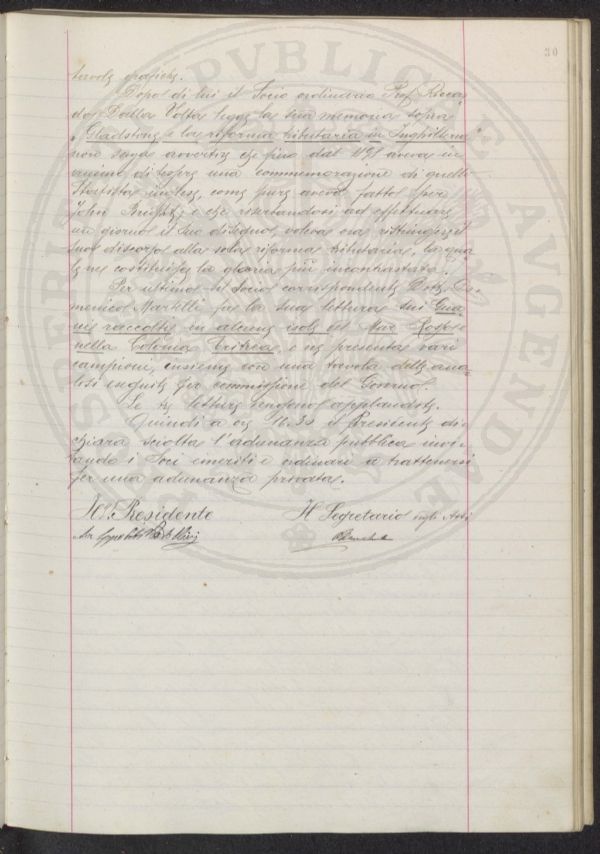 30
tavole grafiche.
Dopo di lui il Socio ordinario Prof. Riccar
do Dalla Volta legge la sua memoria sopra
"Gladstone e la riforma tributaria in Inghilterra"
non senza avvertire che fino dal aveva in
animo di tessere una commemorazione di quello
Statista inglese, come pure aveva fatto per
John Bright; e che riserbandosi ad effettuare
un giorno il suo disegno, voleva ora restringere il
suo discorso alla sola riforma tributaria, la qua
le ne costituisce la gloria più incontrastata.
Per ultimo il Socio corrispondente Dott. Do
menico Martelli fa la sua lettura sui Gua
ni raccolti in alcune isole del Mar Rosso
nella Colonia Eritrea, e ne presenta vari
campioni, insieme con una tavola delle ana
lisi eseguite per commissione del Governo.
Le tre letture vengono applaudite.
Quindi a ore 16.30 il Presidente di
chiara sciolta l'adunanza pubblica invi
tando i Soci emeriti e ordinari a trattenersi
per una adunanza privata.
Il Presidente
Il Segretario degli Atti
PROSPERITATI PUBLICAE AUGENDAE